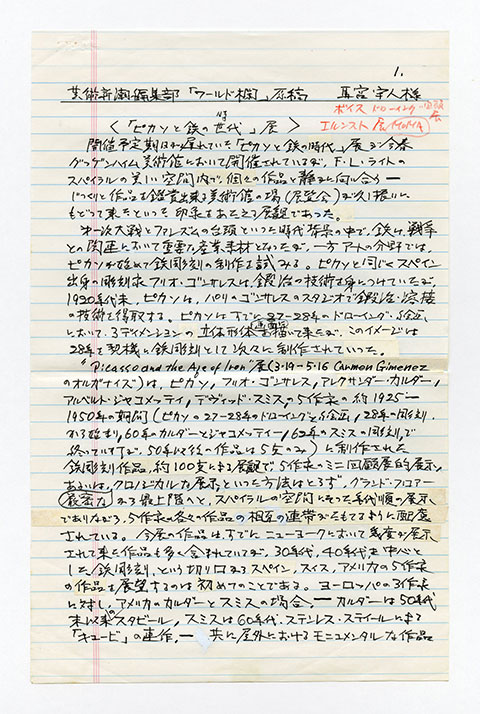 1.
芸術新潮編集部「ワールド欄」原稿
ボイス ドローイング回顧展
エルンスト 展 MOMA
〈「ピカソと鉄の世代」展〉
時
開催予定期はお届れていた「ピカソと鉄の時代」展が今春
グッゲンハイム美術館において開催されているが、F・L・ライトの
スパイラルの美しい空間内で、個々の作品と静かに向い合う一
じっくりと作品を鑑賞出来る美術館の場(展覧会)が久し振りに
もどって来たといった印象をあたえる展観であった。
第一次大戦とファシズムの台頭といった時代背景の中で、鉄は、戦争
との関連において重要な産業素材となったが、一方アートの分野では、
ピカソが始めて鉄彫刻の制作を試みる。ピカソと同じくスペイン
出身の彫刻家フリオ・ゴンザレスは、鍛冶の技術を身につけていたが、
1920年代末、ピカソは、パリのゴンザレスのスタジオで鍛冶・溶接
の技術を得取する。ピカソはすでに27-28年のドローイング・
において、3ディメンションの立体形体を描いて来たが、このイメージは
28年を契機に鉄彫刻として次々に制作されていった。
"Picasso and the Age of Iron"展(3・19-5・16 Carmen Gimenez
のオルガナイズ)は、ピカソ、フリオ・ゴンザレス、アレクサンダー・カルダー、
アルベルト・ジャコメッティ、デヴィッド・スミスの5作家の約1925-
1950年の期間(ピカソの27-28年のドローイングと、28年の彫刻
から始まり、60年のカルダーとジャコメッティー、62年のスミスの彫刻で
終っていたが、50年以後の作品は5点のみ)に制作された
鉄彫刻作品、約100点による展観で5作家のミニ回顧展的展示、
あるいは、クロノジカルな展示といった方法はとらず、グランド・フロアー
厳密な から最上階へと、スパイラルの空間にそった年代順の展示
でありながら、5作家の各々の作品の相互の連帯がたもてるように配慮
されている。今展の作品は、すでにニューヨークにおいて幾度か展示
されて来た作品も多く含まれているが、30年代、40年代を中心と
した鉄彫刻、という切り口によるスペイン、スイス、アメリカの5作家
の作品を展望するのは初めてのことである。ヨーロッパの3作家
に対し、アメリカのカルダーとスミスの場合、一カルダーは50年代
末以来のスタビール、スミスは60年代、ステンレス・スティールによる
「キュービ」の連作、一 共に屋外におけるモニュメンタルな作品